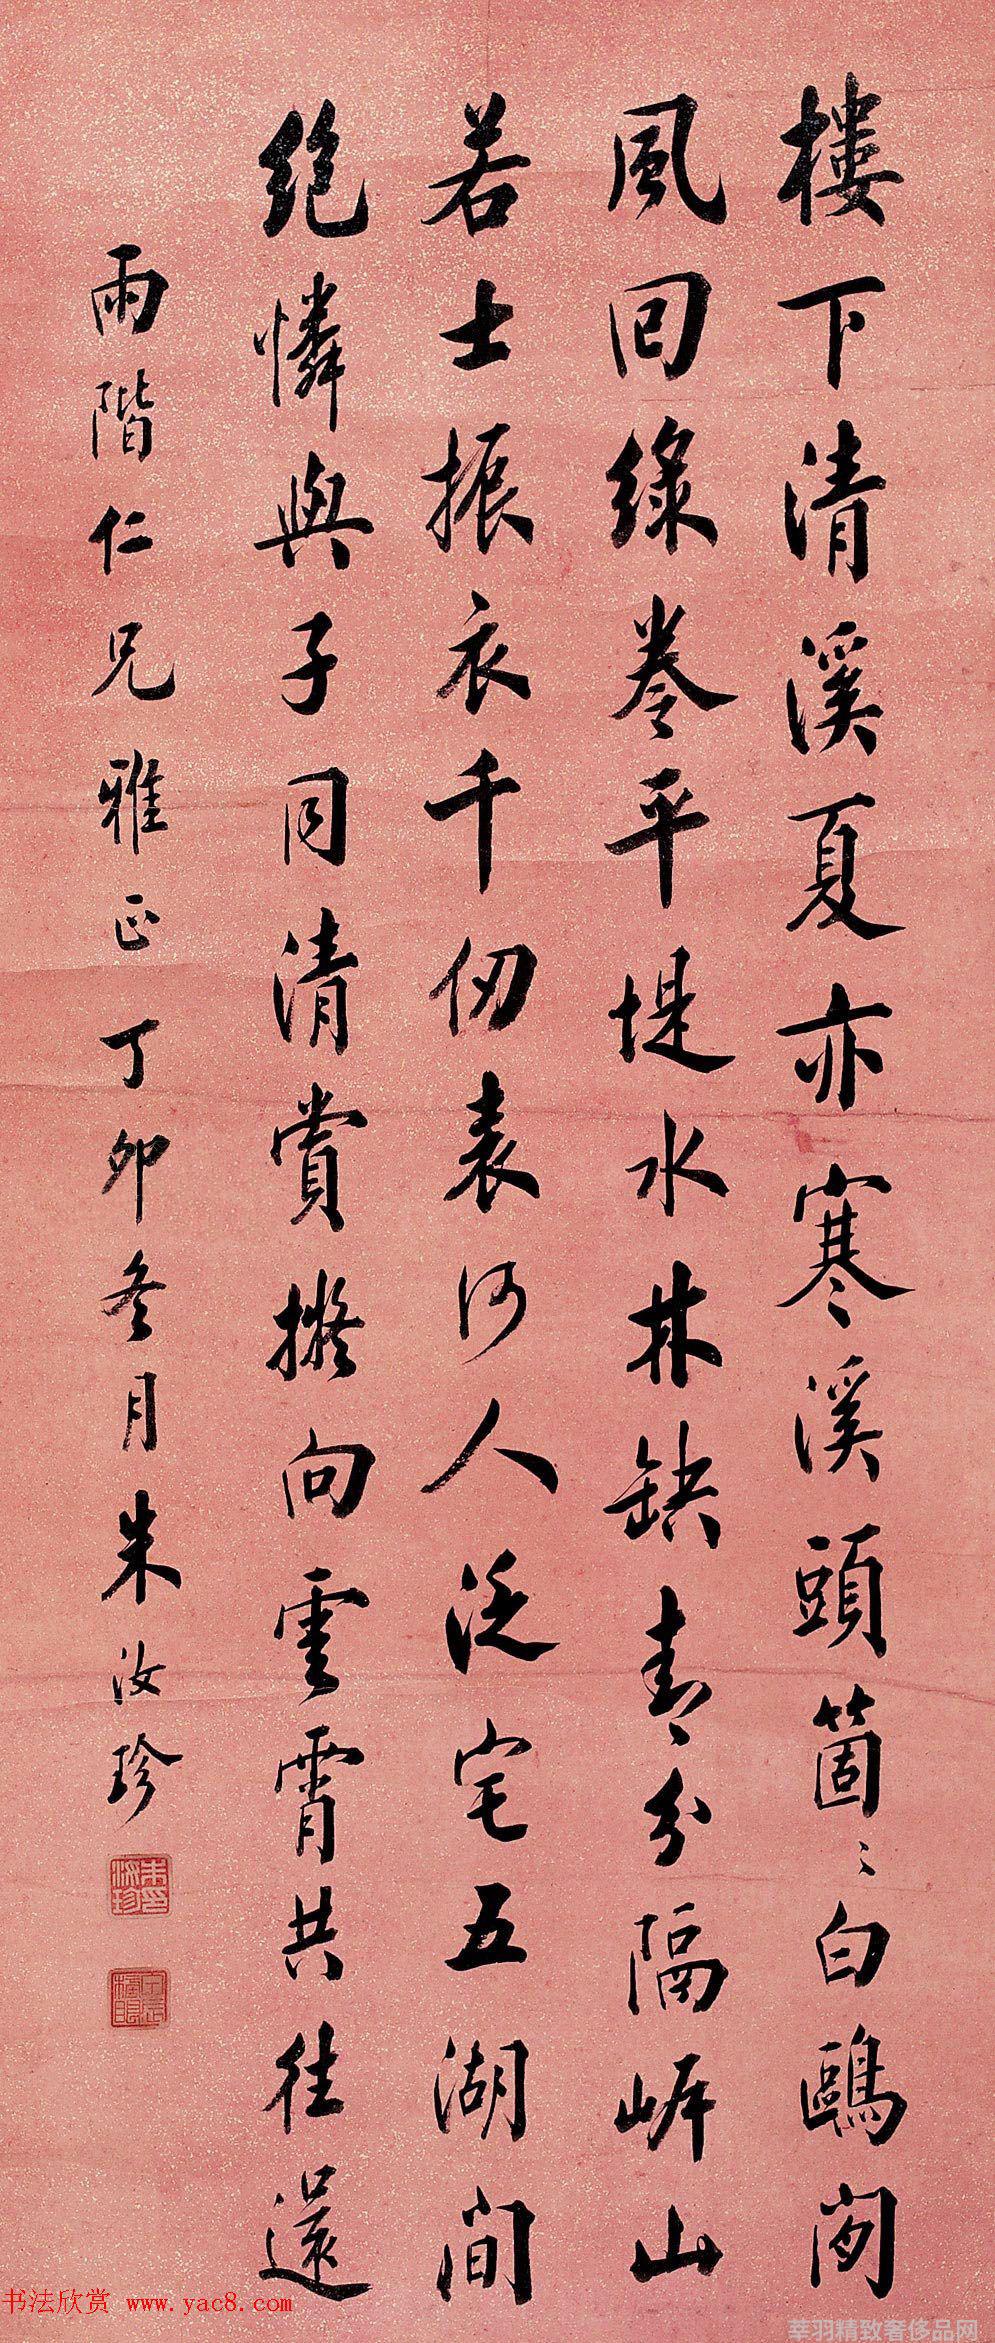 樓下清溪夏亦寒溪頭箇〻白鷗閑
風回綠卷平堤水林缺青分隔岸山
若士振衣千仞表何人泛宅五湖間
絕憐與子同清賞擬向雲霄共往還
雨階仁兄雅正丁卯冬月朱汝珍
朱汝珍印
甲辰榜眼
书法欣赏 www.yac8.com
莘羽精致奢侈品网